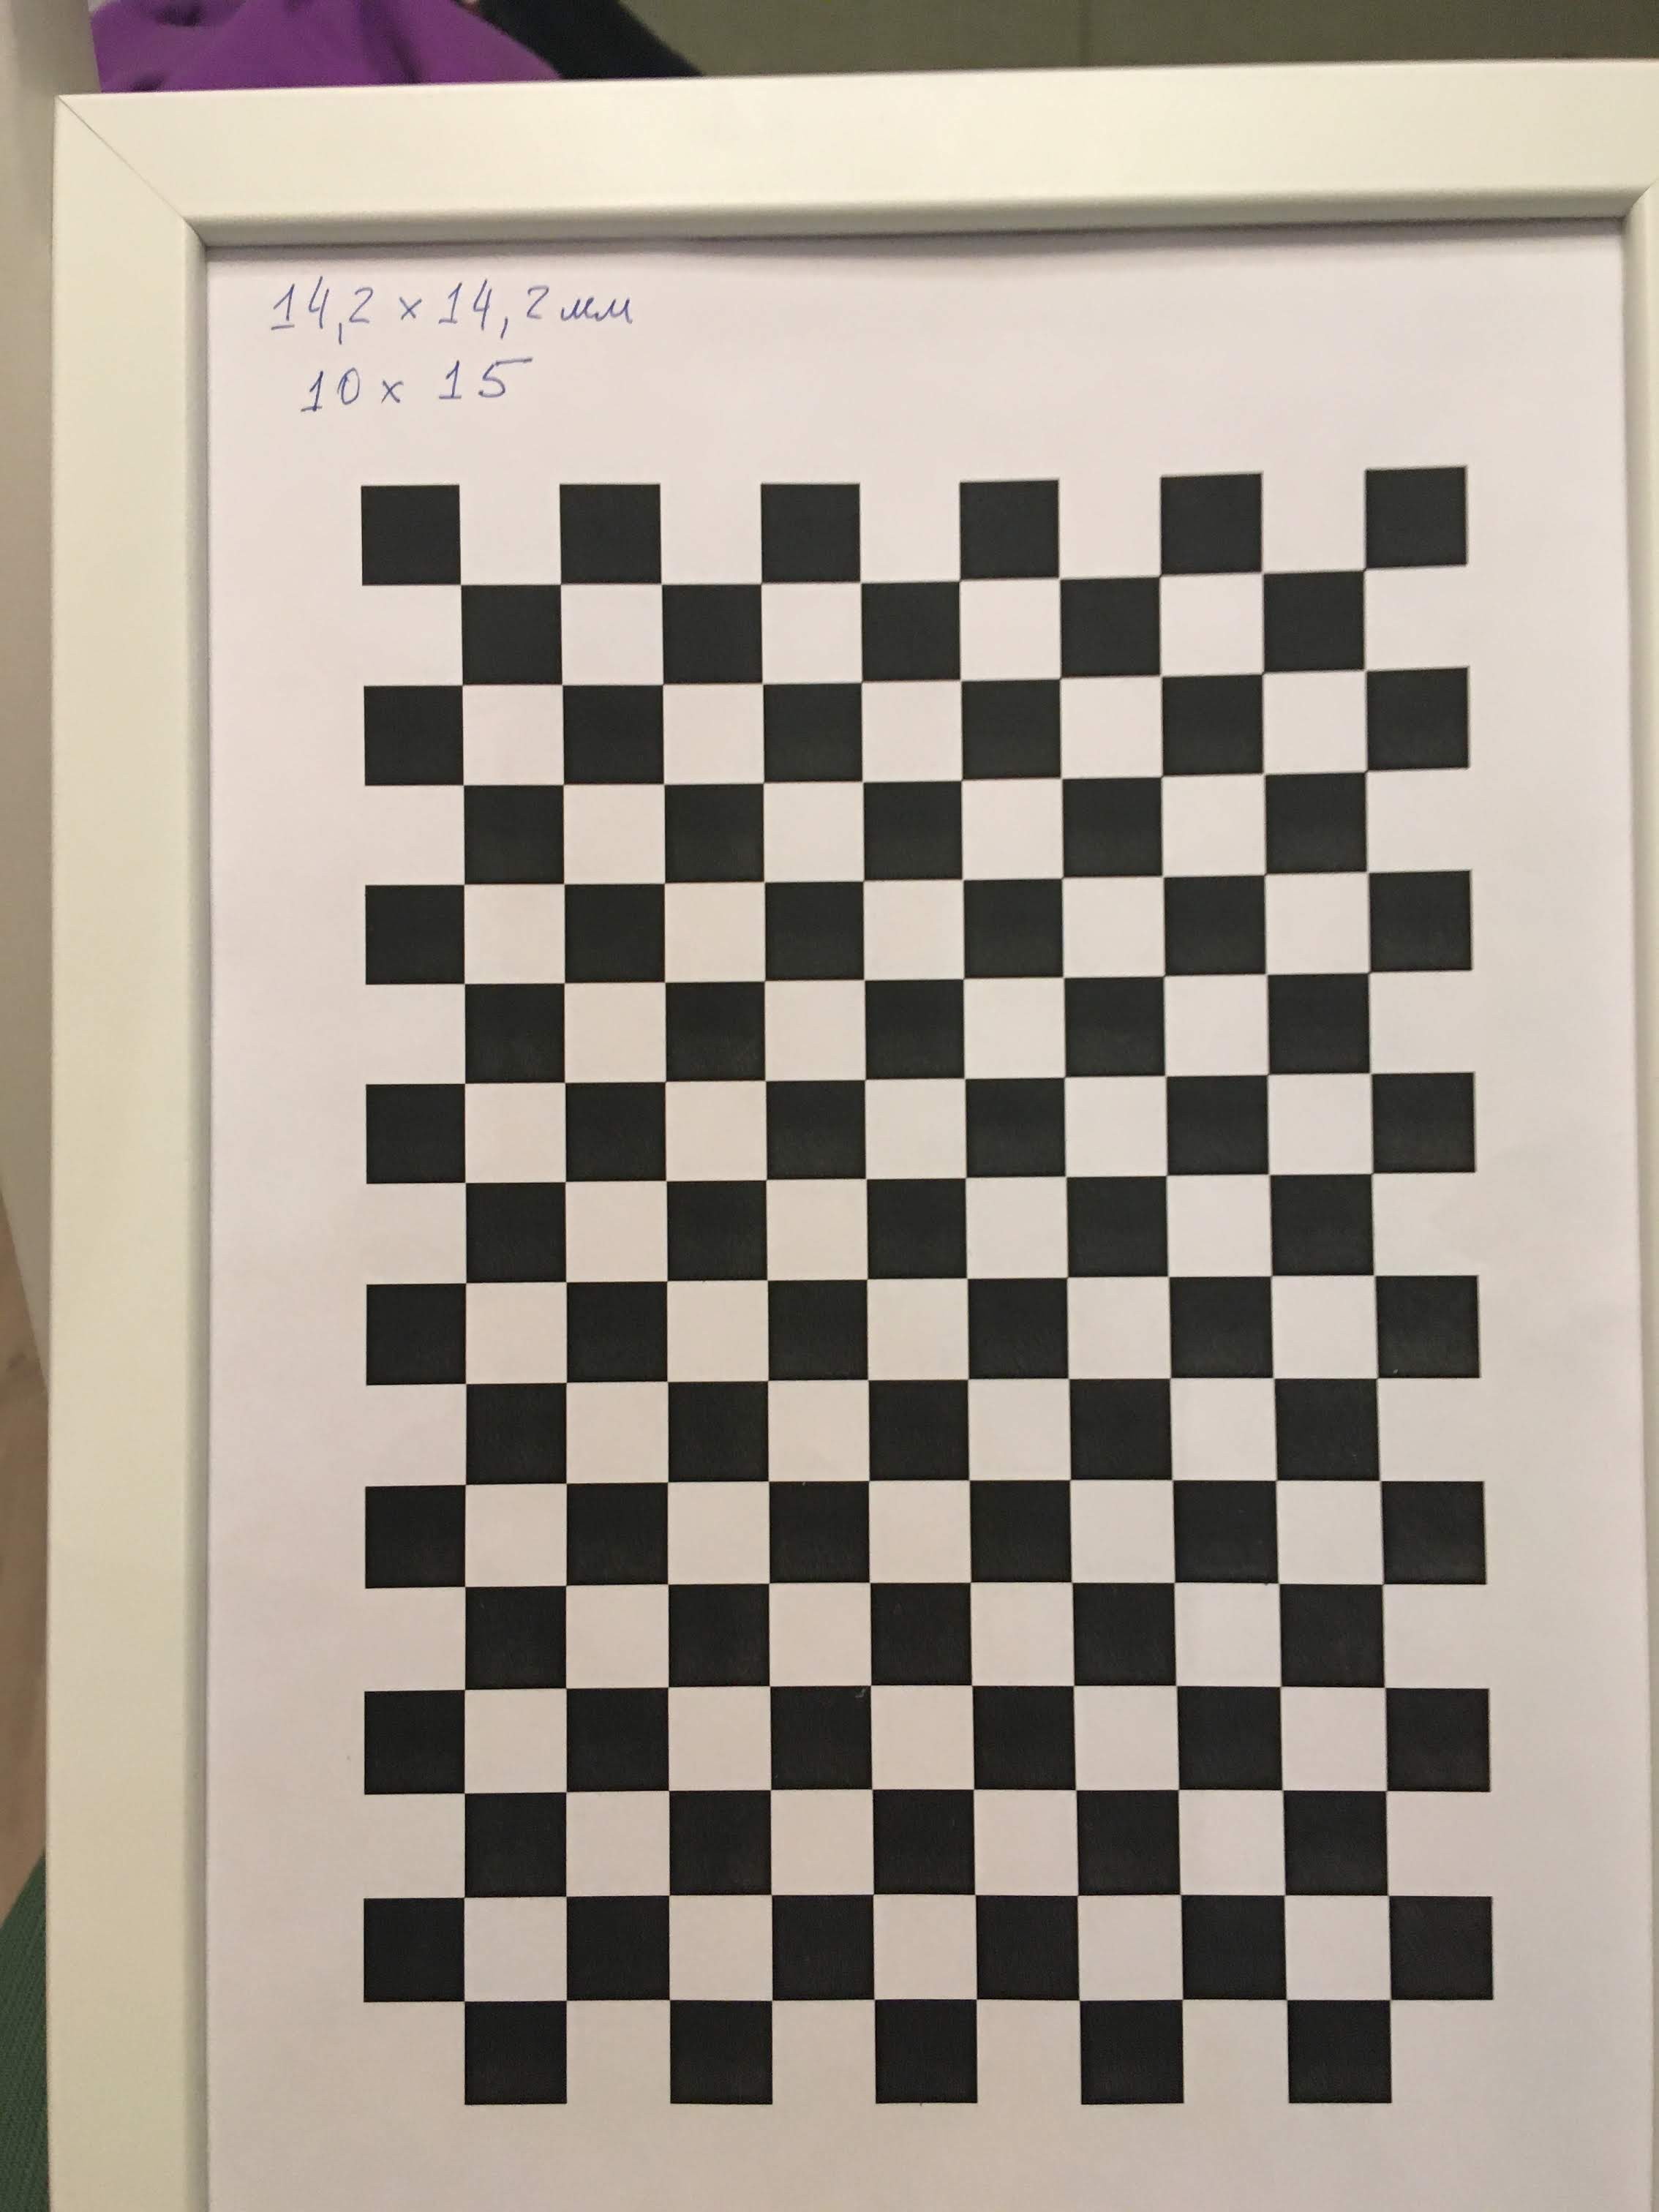 14,2 × 14,2 мм
10 × 15